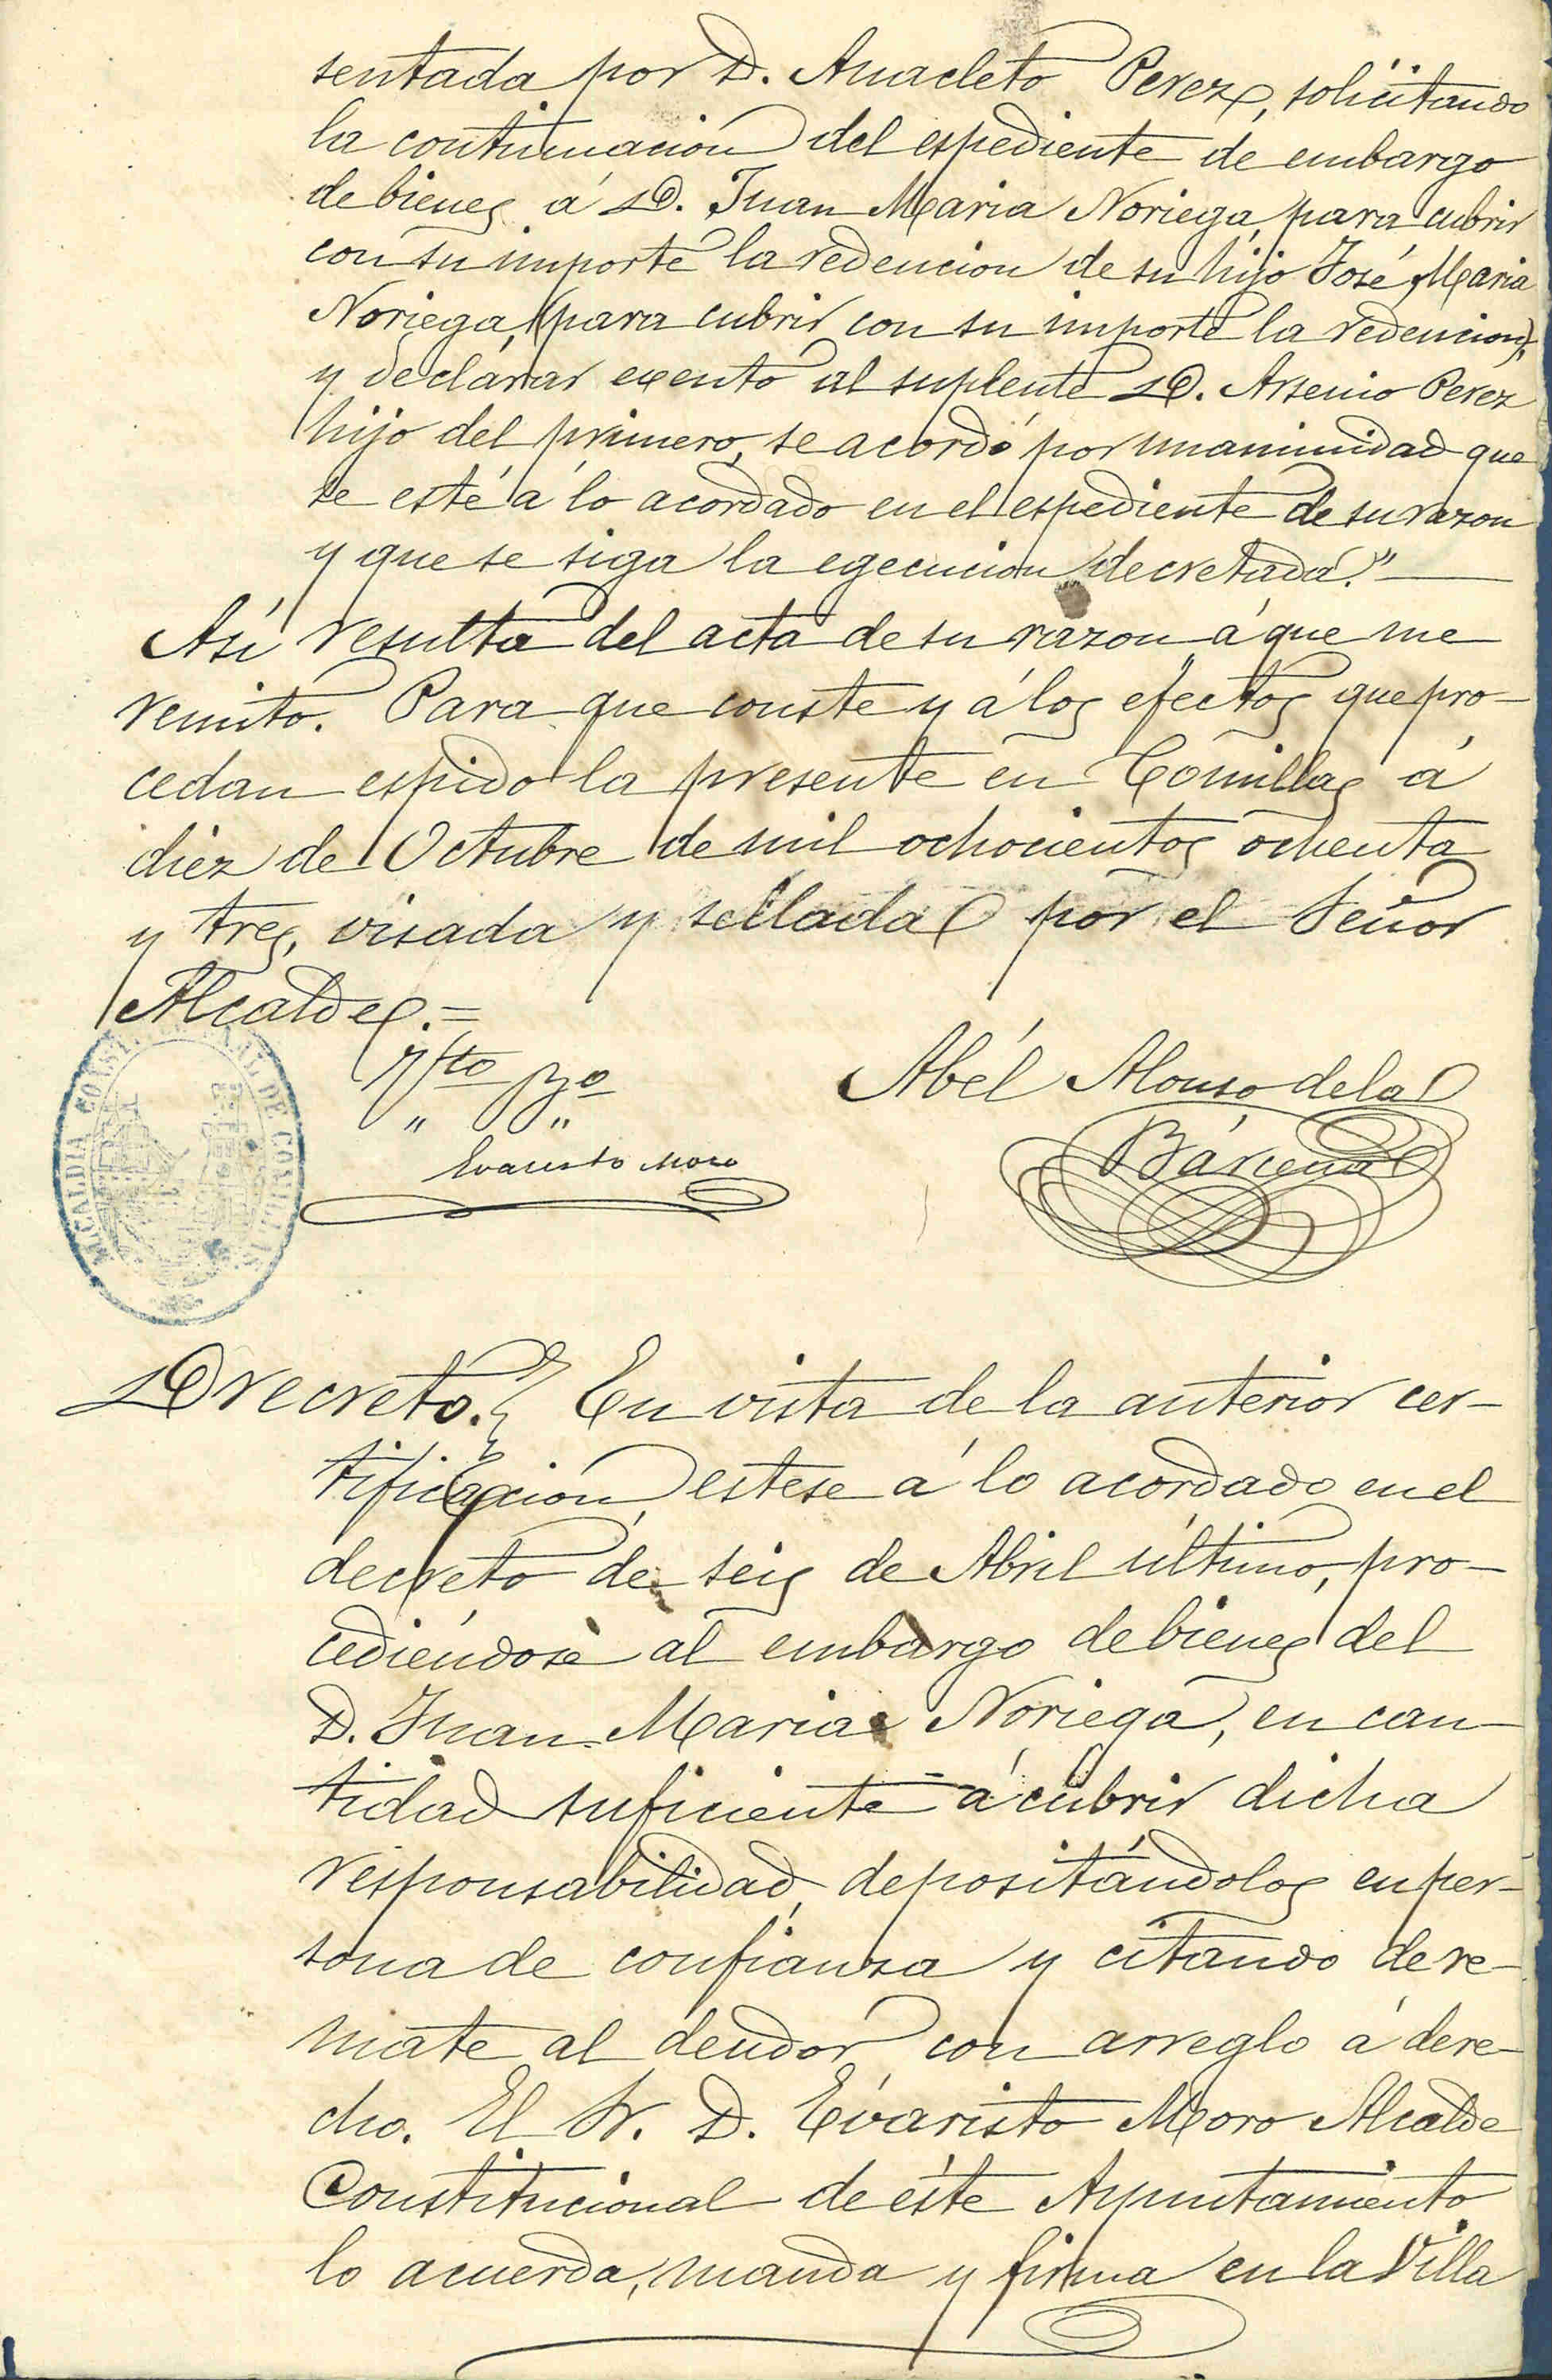 sentada por D. Anacleto Perez, solicitando
la continuacion del espediente de embargo
de bienes á D. Juan Maria Noriega, para cubrir
con su importe la redencion de su hijo José Maria
Noriega, (para cubrir con su importe la redencion),
y declarar exento al suplente D. Arsenio Perez
hijo del primero, se acordó por unanimidad que
se esté á lo acordado en el espediente de su razon
y que se siga la egecucion decretada."
Así resulta del acta de su razon á que me
remito. Para que conste y á los efectos que pro-
cedan espido la presente en Comillas á
diez de Octubre de mil ochocientos ochenta
y tres, visada y sellada por el Señor
Alcalde.=
Vto Bo
" "
Evaristo Moro
Abél Alonso de la
Bárcena
ALCALDIA CONSTITUCIONAL DE COMILLAS
Drecreto. En vista de la anterior cer-
tificacion, estese á lo acordado en el
decreto de seis de Abril último, pro-
cediéndose al embargo de bienes del
D. Juan Maria Noriega, en can-
tidad suficiente á cubrir dicha
responsabilidad, depositándolos en per-
sona de confianza y citando de re-
mate al deudor con arreglo á dere-
cho. El Sr. D. Evaristo Moro Alcalde
Constitucional de éste Ayuntamiento
lo acuerda, manda y firma en la Villa